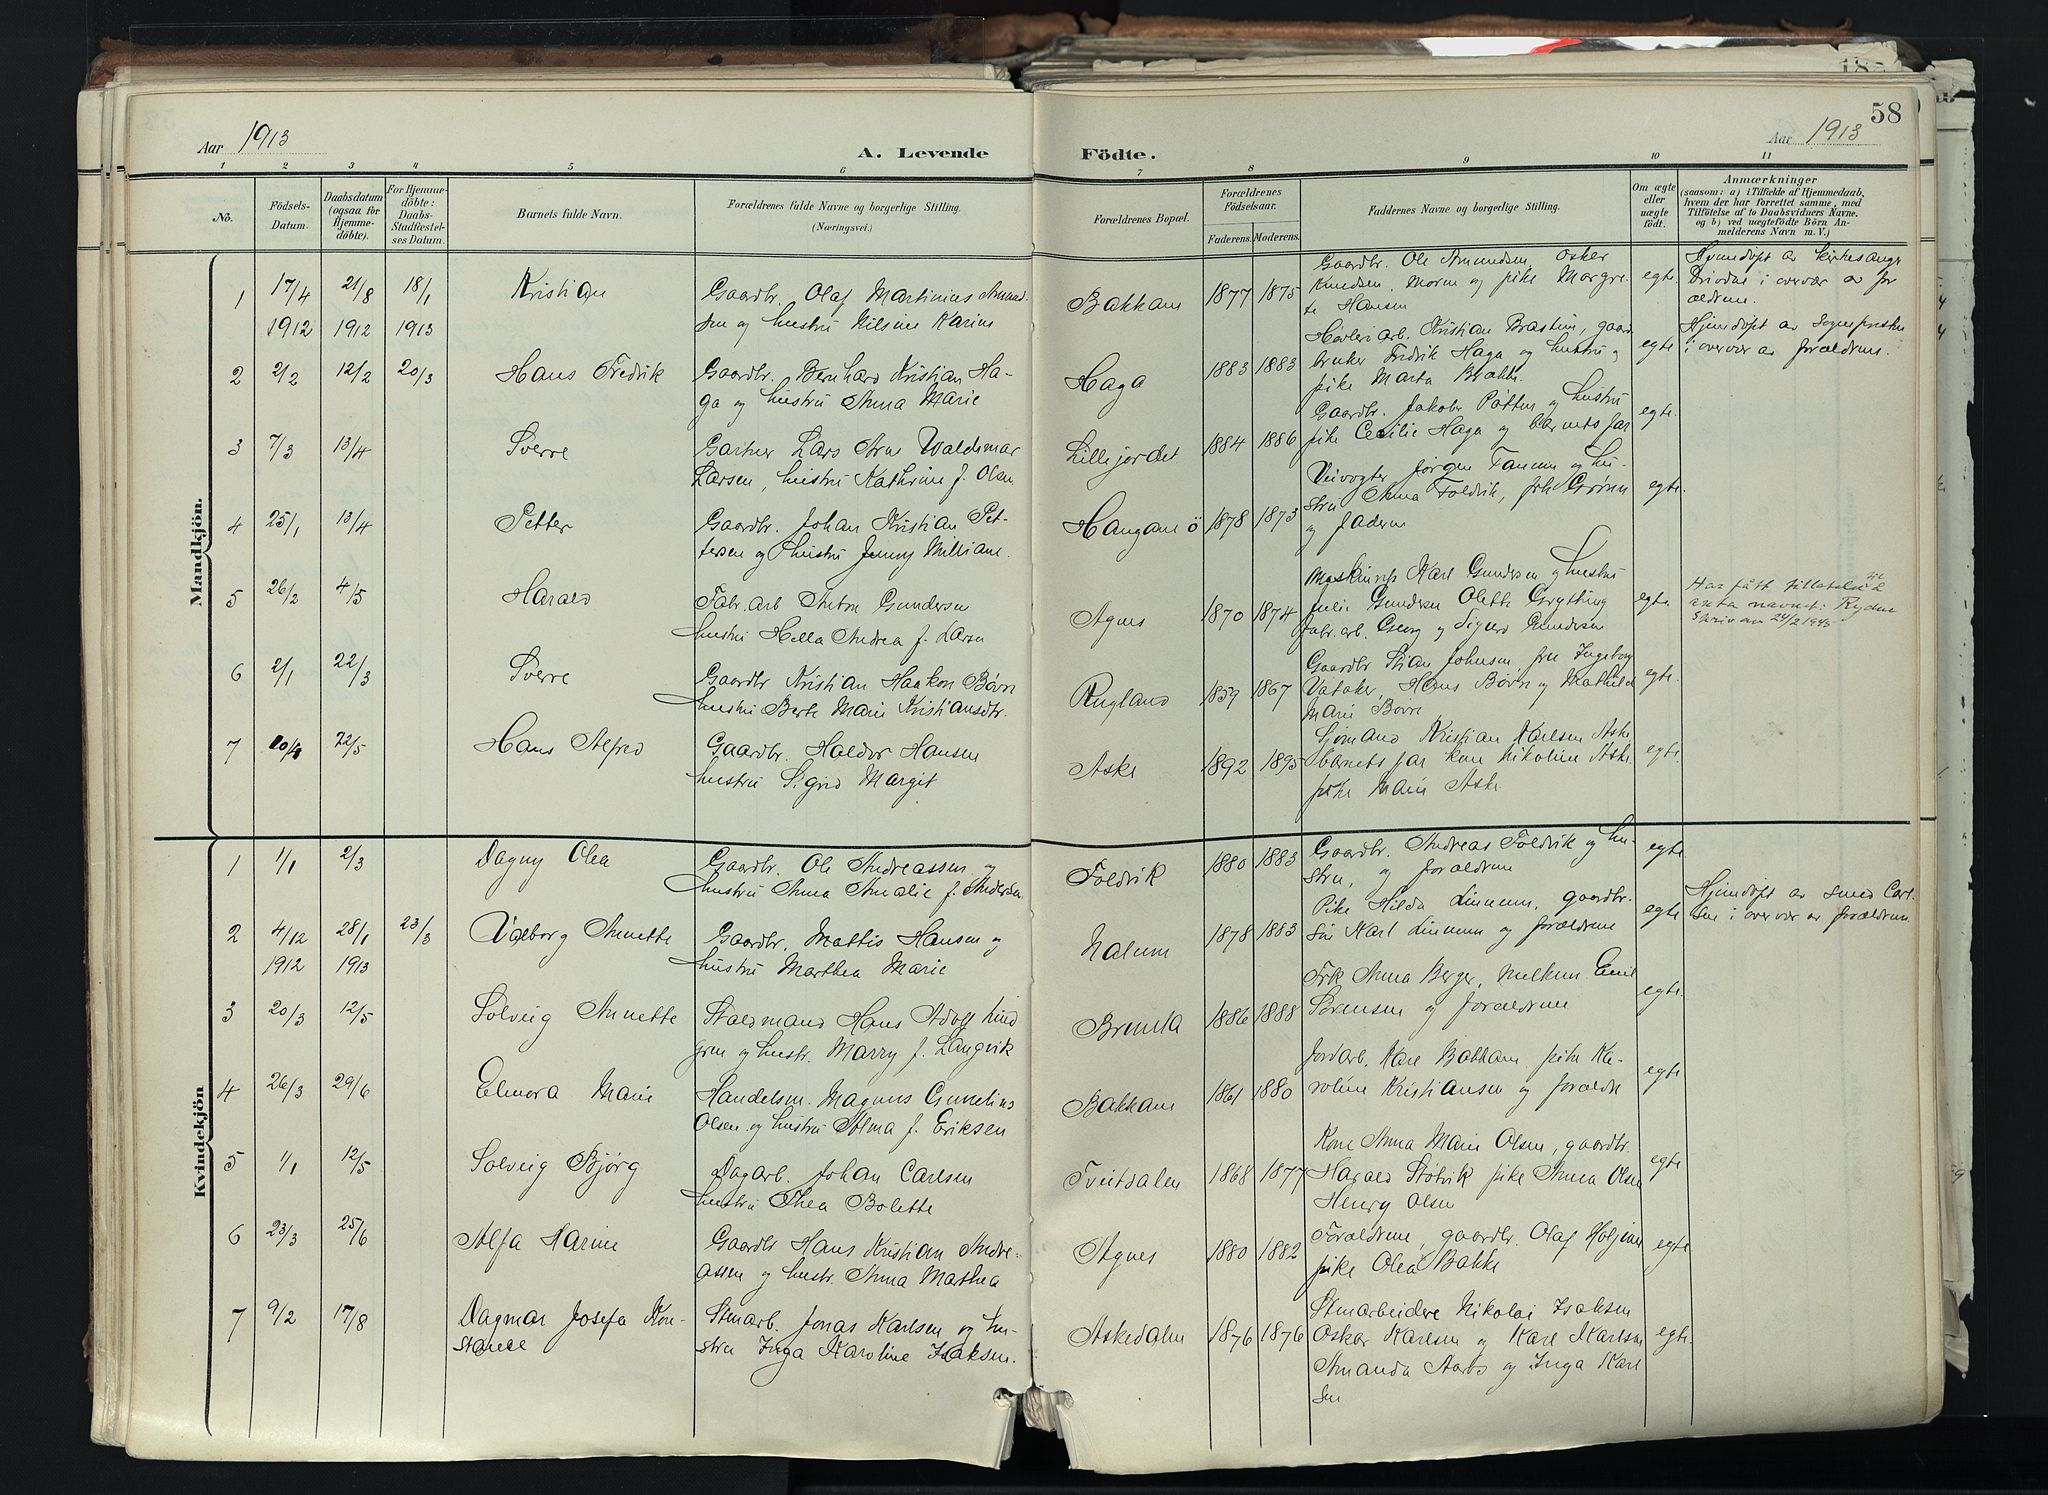 58
Aar 1913
A. Levende Födte.
Aar 1913
1 2 3 4 5 6 7 8 9 10 11
No.
Födsels-Datum.
Daabsdatum (ogsaa for Hjemme-döbte).
For Hjemme-döbte: Daabs-Stadfæstel-ses Datum.
Barnets fulde Navn.
Forældrenes fulde Navne og borgerlige Stilling.
(Næringsvei.)
Forældrenes Bopæl.
Forældrenes Födselsaar.
Faderens. Moderens.
Faddernes Navne og borgerlige Stilling.
Om ægte eller uægte födt.
Anmærkninger
(saasom: a) i Tilfælde af Hjemmedaab,
hvem der har forrettet samme, med
Tilföielse af to Daabsvidners Navne.
og b) ved uægtefödte Börn An-
melderens Navn m. V.)
Mandkjön.
1 17/4 1912 21/8 1912 18/1 1913 Kristian
Gaardbr. Olaf Martinius Amund-
sen og hustru Nilsine Karine
Bakkane 1877 1875
Gaardbr. Ole Amundsen, Osker
Knudsen, Moren og pike Margre-
te Hansen
egte.
Hjemdøpt av kirkesanger
i overvær av for
ældrene.
2 2/2 12/2 20/3 Hans Fredrik
Gaardbr. Bernhard Kristian Ha-
ga og hustru Anna Marie
Haga 1883 1883
Kristian gaard
bruker Fredrik Haga og hustru og
pike Marta
egte
Hjemdøpt av Sogneprästen
i overvær av forældrene.
3 7/3 13/4 Sverre
Gartner Lars Arne Waldemar
Larsen, hustru Kathrine f. Olsen.
Lillejordet 1884 1886
Gaardbr. Jakob og hustru
pike Cecilie Haga og barnets far
egte.
4 25/1 13/4 Petter
Gaardbr. Johan Kristian Pet-
tersen og hustru Jenny Milliane.
Haugane ö 1878 1873
Veivogter Jørgen Tanum og hu-
stru Anna Foldvik,
og faderen
egte.
5 26/2 4/5 Harald
Fabr. arb Anton Gundersen
hustru Hella Andrea f. Larsen
Agnes 1870 1874
Karl Gundersen og hustru
Julie Gundersen Olette Grytting
fabr. arb. Georg og Sigurd Gundersen
egte.
Har fått tillatelse til å
anta navnet: Rydne
Skriv av 24/2 1945
6 2/1 22/3 Sverre
Gaardbr Kristian Haakon Bövre
hustru Berte Marie Kristiansdtr.
Rugland 1859 1867
Gaardbr Stian Johnsen, fru Ingeborg
Vataker, Hans Bövre og Mathilde
Marie Bovre
egte.
7 22/5 Hans Alfred
Gaardbr. Haldor Hansen
hustru Sigrid Margit
Aske 1892 1895
Sjømand Kristian Karlsen Aske
barnets far kone Nikoline Aske.
pike Marie Aske
egte.
Kvindekjön
1 1/1 2/3 Dagny Olea
Gaardbr. Ole Andreassen og
hustru Anna Amalie f. Andersen
Foldvik 1880 1883
Gaardbr. Andreas Foldvik og hu-
stru, og forældrene
egte
2 4/12 1912 28/1 1913 23/3 Valborg Annette
Gaardbr. Mattis Hansen og
hustru Marthea Marie
Nalum 1878 1883
Pike Hilda Linnum, gaardbr.
søn Karl Linnum og forældrene
egte
Hjemdøpt av smed Carl-
sen i overvær av forældrene
3 20/3 12/5 Solveig Annette
Staldmand Hans Adolf Lind
gren og hustr. Marry f. Langvik
Brunla 1886 1888
Frk Anna Berger, Emil
Sörensen og forældrene
egte.
4 26/3 29/6 Elenora Marie
Handelsm. Magnus Cornelius
Olsen og hustru Alma f. Eriksen
Bakkane 1861 1880
Jordarb. Karl Bakkane pike Ka-
roline Kristiansen og forældre
egte
5 1/1 12/5 Solveig Bjørg
Dagarb. Johan Carlsen
hustru Thea Bolette
Tveitdalen 1868 1877
Kone Anna Marie Olsen, gaardbr.
Harald Stolvik pike Anna Olsen
Henry Olsen
egte
6 23/3 25/6 Alfa Karine
Gaardbr Hans Kristian Andre-
assen og hustr. Anna Marthea
Agnes 1880 1882
Forældrene, gaardbr. Olaf Holjines
pike Olea Bakke
egte
7 9/2 17/8 Dagmar Josefa Kon-
stance
Stenarb. Jonas Karlsen og hu-
stru Inga Karoline Isaksen.
Askedalen 1876 1876
Stenarbeidere Nikolai Isaksen
Oskar Karlsen og Karl Karlsen
Amanda Aarbo og Inga Karl
sen
egte.